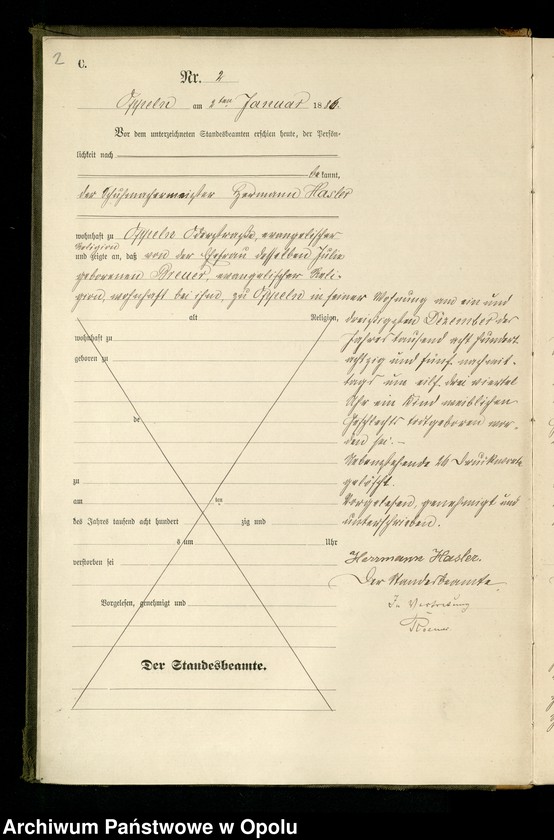 2
C.
Nr. 2
Oppeln am 2ten Januar 1886.
Vor dem unterzeichneten Standesbeamten erschien heute, der Persön-
lichkeit nach
bekannt,
der Schuhmachermeister Hermann Hasler
wohnhaft zu Oppeln Oderstraße, evangelischer
Religion
und zeigte an, daß von der Ehefrau desselben Julie
geborenen Breuer, evangelischer Reli-
gion, wohnhaft bei ihm, zu Oppeln in seiner Wohnung am ein und
dreißigsten Dezember des
Jahres tausend acht hundert
achtzig und fünf nachmit-
tags um eilf drei viertel
Uhr ein Kind weiblichen
Geschlechts todtgeboren wor-
den sei.-
Nebenstehende 26 Druckworte
gelöscht.
Vorgelesen, genehmigt und
unterschrieben.
Herrmann Hasler.
Der Standesbeamte
In Vertretung
alt Religion,
wohnhaft zu
geboren zu
de
zu
am ten
des Jahres tausend acht hundert zig und
s um Uhr
verstorben sei
Vorgelesen, genehmigt und
Der Standesbeamte.
Archiwum Państwowe w Opolu